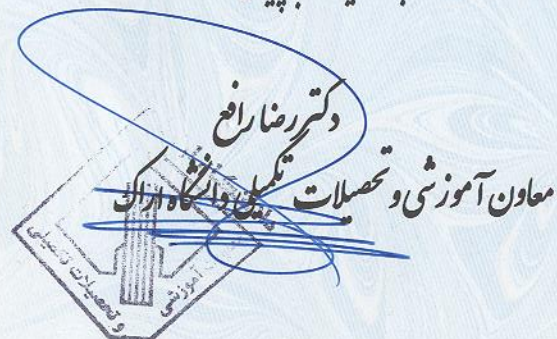 دکتر رضا رافع
معاون آموزشی و تحصیلات تکمیلی دانشگاه اراک
آموزشی
و تحصیلات تکمیلی